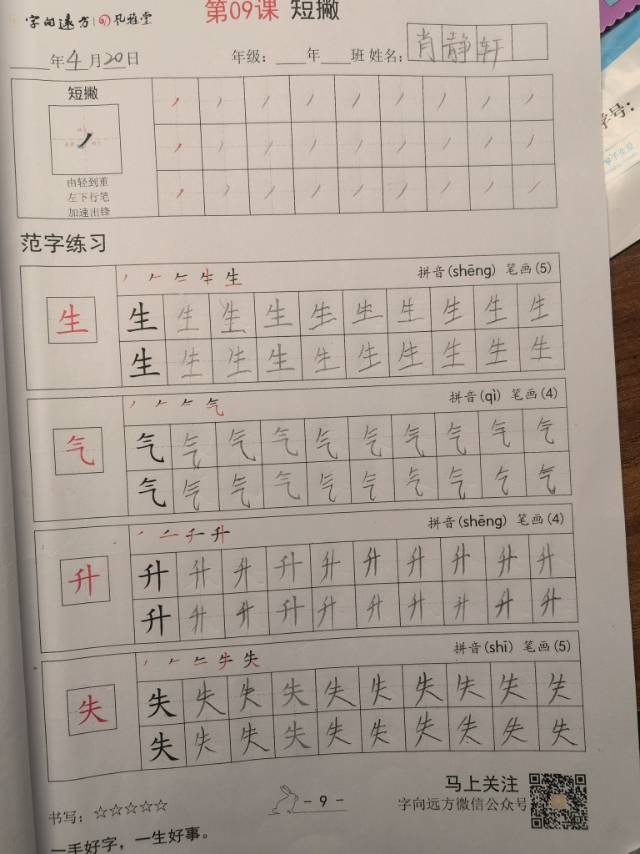 字向远方 孔雅堂
第09课 短撇
年4月20日 年级: 年 班 姓名: 肖静轩
短撇
由轻到重
左下行笔
加速出锋
学号:
范字练习
拼音(shēng) 笔画(5)
生 生 生 生 生 生 生 生 生 生 生
生 生 生 生 生 生 生 生 生 生
拼音(qì) 笔画(4)
气 气 气 气 气 气 气 气 气 气 气
气 气 气 气 气 气 气 气 气 气
拼音(shēng) 笔画(4)
升 升 升 升 升 升 升 升 升 升 升
升 升 升 升 升 升 升 升 升 升
拼音(shī) 笔画(5)
失 失 失 失 失 失 失 失 失 失 失
失 失 失 失 失 失 失 失 失 失
马上关注
字向远方微信公众号
- 9 -
书写: ☆☆☆☆☆
一手好字，一生好事。